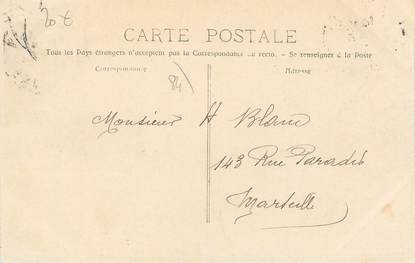 20 €
CARTE POSTALE
Tous les Pays étrangers n'acceptent pas la Correspondance au recto. - Se renseigner à la Poste
Correspondance
Adresse
84)
Monsieur H Blanc
143 Rue Paradis
Marseille